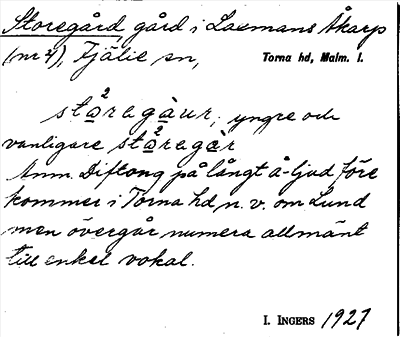 Storegård, gård i Laxmans Åkarp
(nr 4), Fjälie sn, Torna hd, Malm. l.
stå²ragàur; yngre och
vanligare stå²ragàr
Anm. Diftong på långt å-ljud före
kommer i Torna hd n. v. om Lund
men övergår numera allmänt
till enkel vokal.
I. INGERS 1927